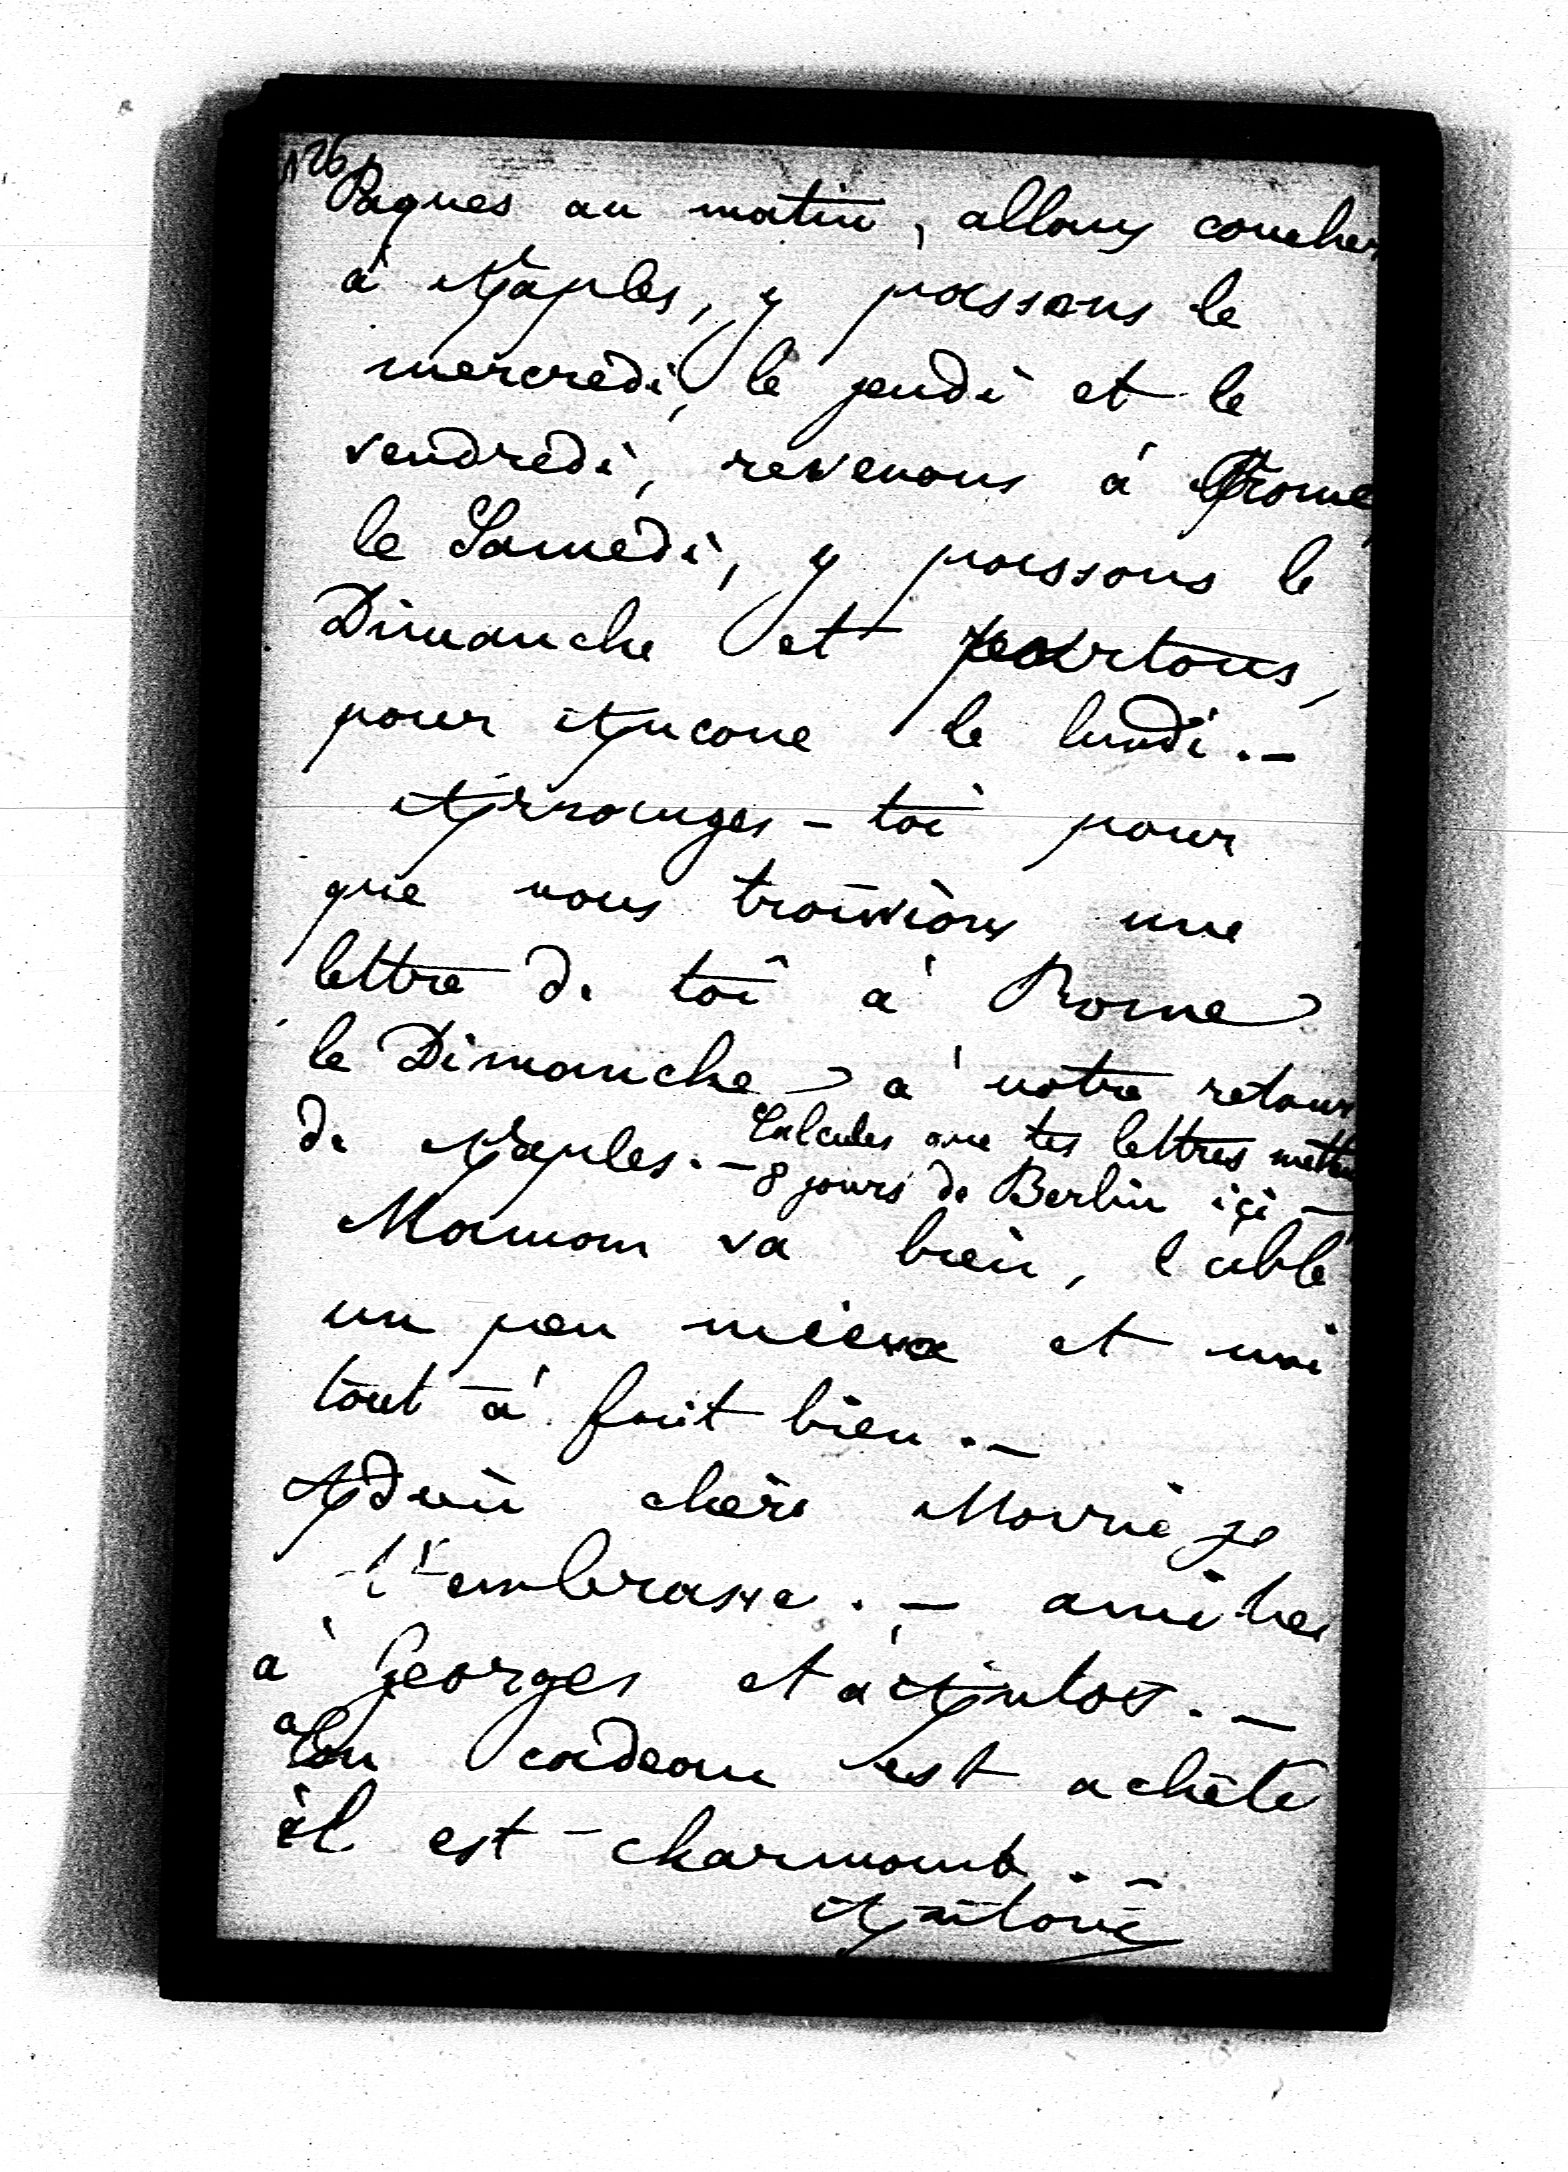 126
Paques au matin, allons coucher
à Naples, y passons le
mercredi, le jeudi et le
vendredi, revenons à Rome,
le Samedi, y passons le
Dimanche et partons,
pour Ancone le lundi. –
Arranges-toi pour
que nous trouvions une
lettre de toi à Rome
le Dimanche à notre retour
de Naples. – Calcules que tes lettres mettent
8 jours de Berlin içi –
Maman va bien, l'abbé
un peu mieux et moi
tout à fait bien. –
Adieu chère Marie je
t'embrasse. – amitiés
à Georges et à
Ton cadeau est acheté
il est charmant. –